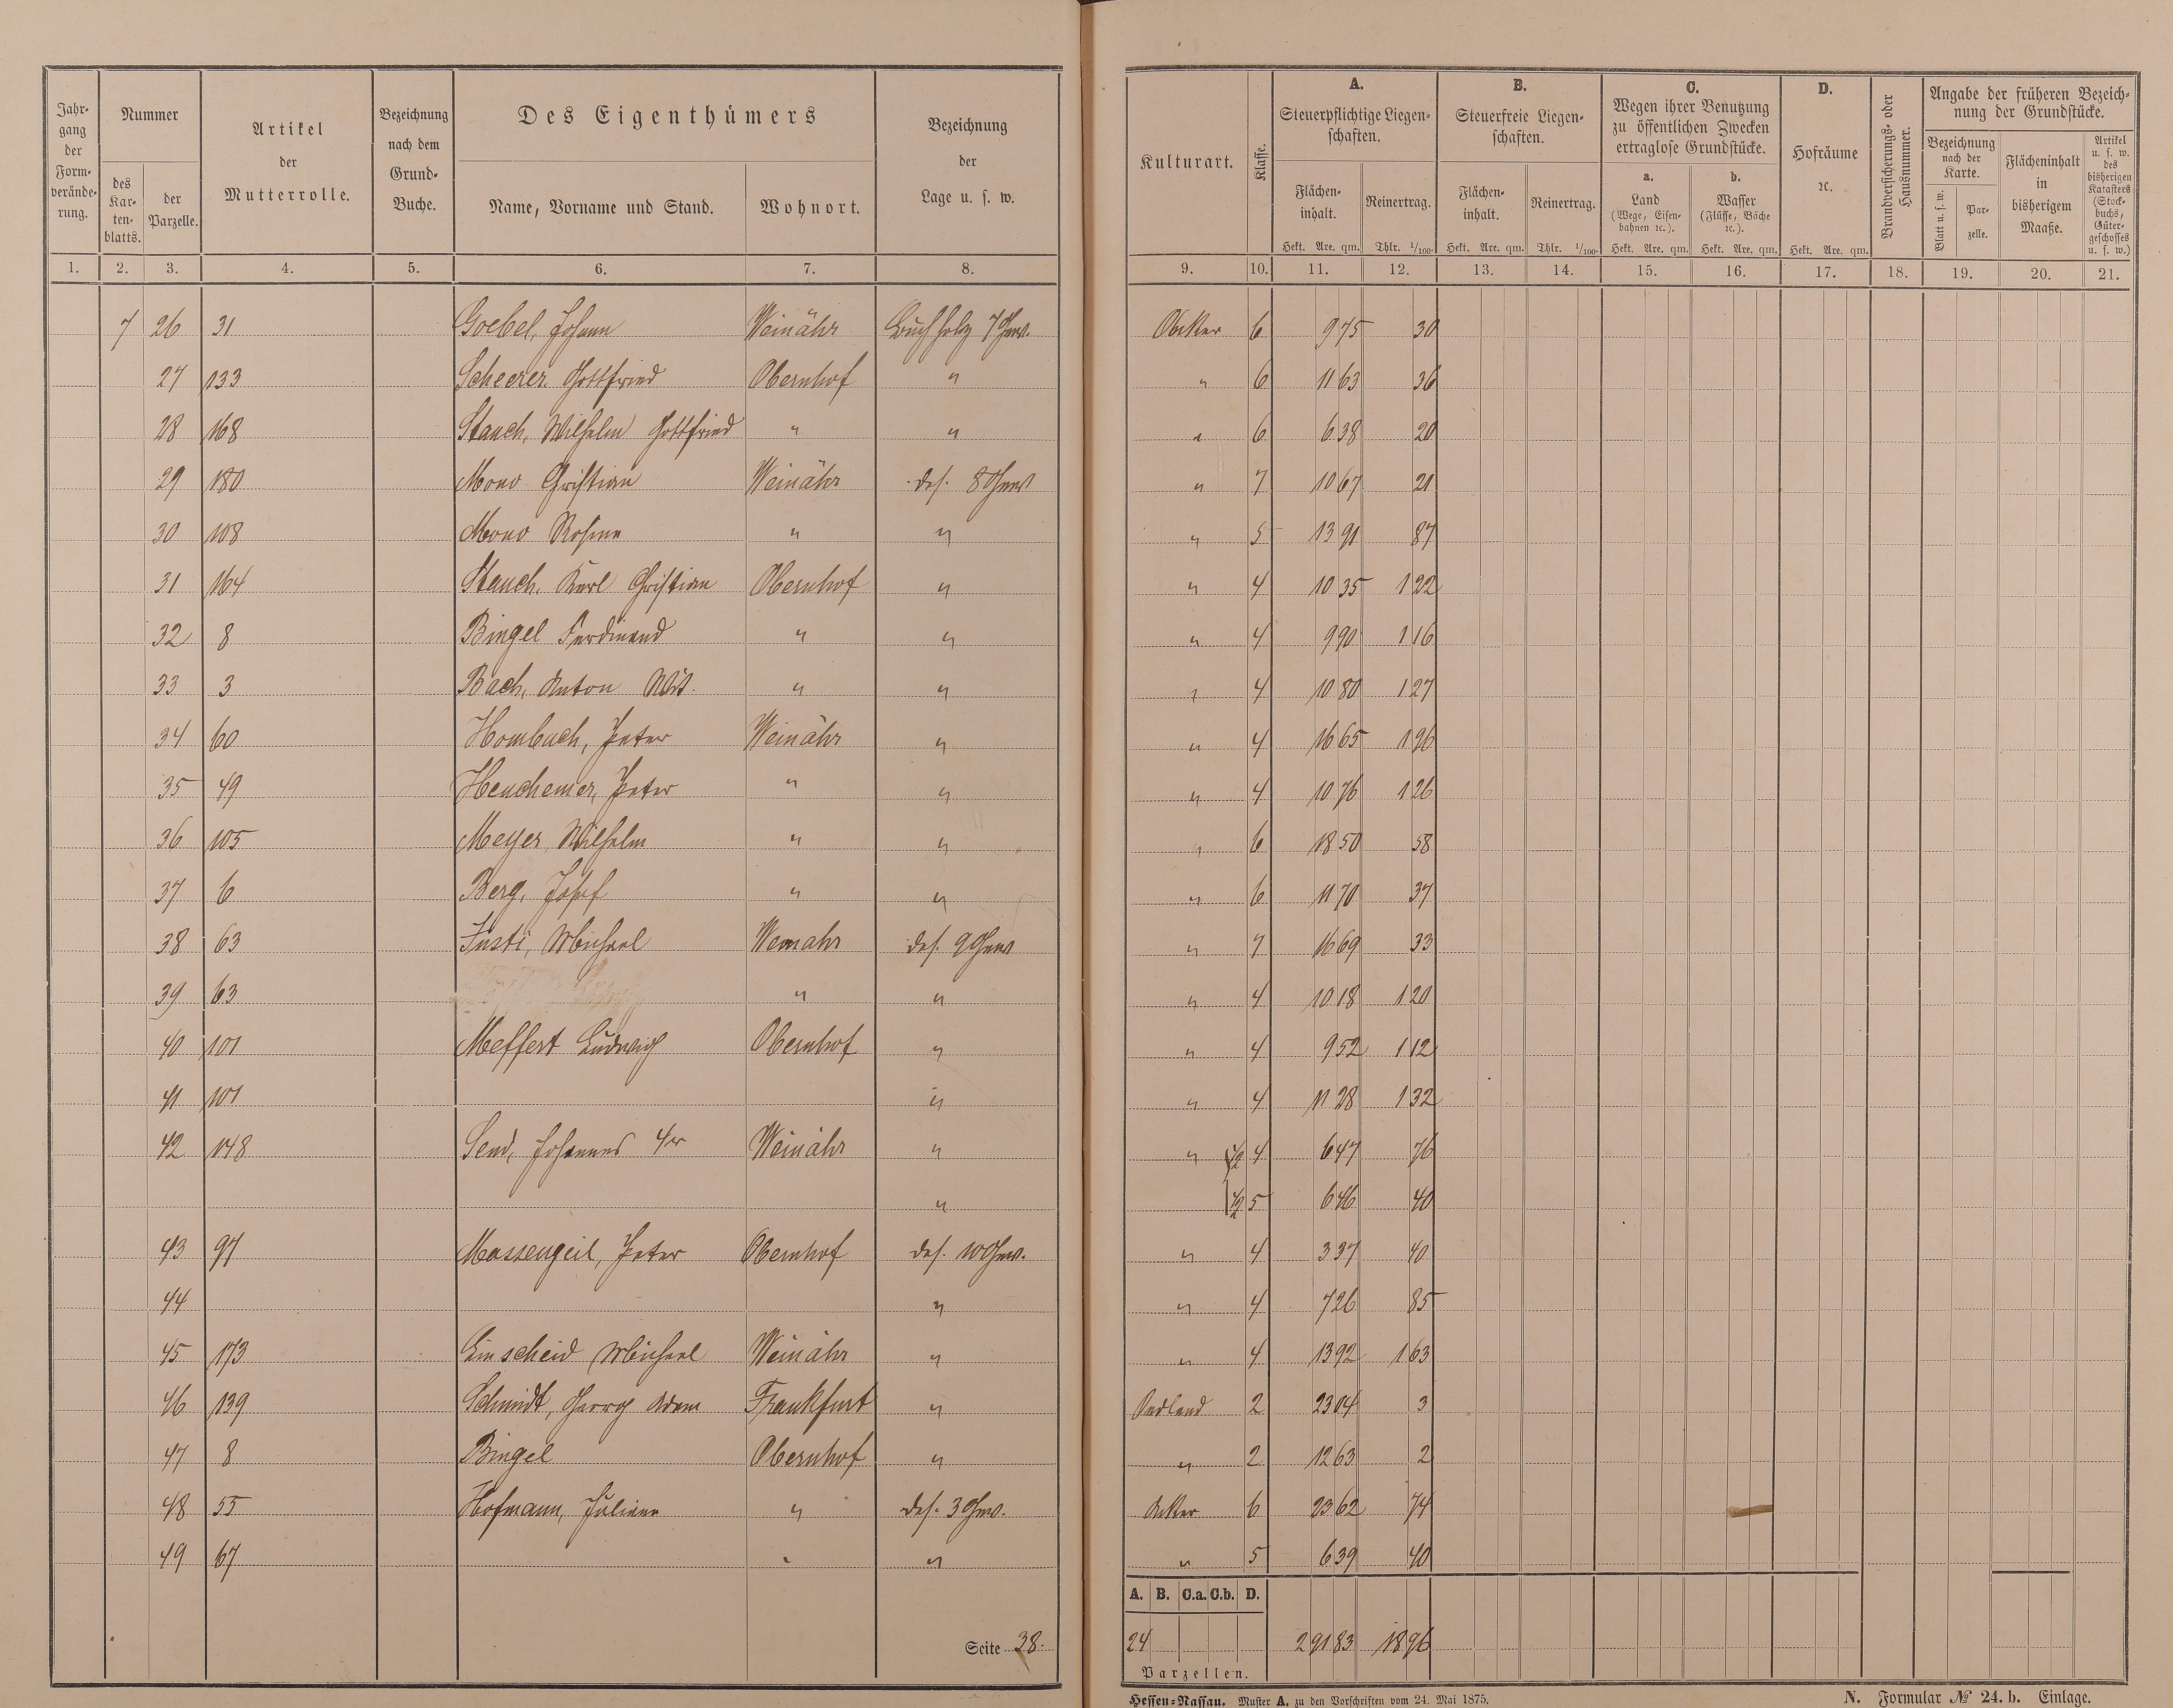 Jahrgang der Formveränderung. Nummer Artikel der Mutterrolle. Bezeichnung nach dem Grund-Buche. Des Eigenthümers Bezeichnung der Lage u. s. w.
des Kartenblatts. der Parzelle. Name, Vorname und Stand. Wohnort.
1. 2. 3. 4. 5. 6. 7. 8.
Kulturart. Klasse. A. Steuerpflichtige Liegenschaften. B. Steuerfreie Liegenschaften. C. Wegen ihrer Benutzung zu öffentlichen Zwecken ertraglose Grundstücke. D. Hofräume ꝛc. Brandversicherungs- oder Hausnummer. Angabe der früheren Bezeichnung der Grundstücke.
Flächeninhalt. Reinertrag. Flächeninhalt. Reinertrag. a. Land (Wege, Eisenbahnen ꝛc.). b. Wasser (Flüsse, Bäche ꝛc.). Bezeichnung nach der Karte. Blatt u. s. w. Parzelle. Flächeninhalt in bisherigem Maaße. Artikel u. s. w. des bisherigen Katasters (Stockbuchs, Gütergeschosses u. s. w.)
Hekt. Are. qm. Thlr. 1/100. Hekt. Are. qm. Thlr. 1/100. Hekt. Are. qm. Hekt. Are. qm. Hekt. Are. qm.
9. 10. 11. 12. 13. 14. 15. 16. 17. 18. 19. 20. 21.
7 26 31 Goebel, Johann Weinähr Buchholz 7 Gew. Acker 6 9 75 30
27 133 Scheerer Gottfried Obernhof " " 6 11 63 36
28 168 Stauch, Wilhelm Gottfried " " " 6 6 38 20
29 180 Mono Christian Weinähr das. 8 Gew " 7 10 67 21
30 108 Mono " " " 5 13 91 87
31 164 Stauch, Karl Christian Obernhof " " 4 10 35 1 22
32 8 Bingel Ferdinand " " " 4 9 90 1 16
33 3 Bach, Anton " " " 4 10 80 1 27
34 60 Hombach, Peter Weinähr " " 4 16 65 1 96
35 49 Heuchemer, Peter " " " 4 10 76 1 26
36 105 Meyer, Wilhelm " " " 6 18 50 58
37 6 Berg, Josef " " " 6 11 70 37
38 63 Justi, Michael Weinähr das. 9 Gew " 7 16 69 33
39 63 " " " 4 10 18 1 20
40 101 Meffert Ludwig Obernhof " " 4 9 52 1 12
41 101 " " 4 11 28 1 32
42 148 Send, Johannes 4r Weinähr " " 1/2 4 6 47 76
" 1/2 5 6 46 40
43 97 Massengeil, Peter Obernhof das. 10 Gew. " 4 3 37 40
44 " " 4 7 26 85
45 173 Linscheid Michael Weinähr " " 4 13 92 1 63
46 139 Schmidt, Georg Adam Frankfurt " Oedland 2 23 04 3
47 8 Bingel Obernhof " " 2 12 63 2
48 55 Hofmann, Juliane " das. 3 Gew. Acker 6 23 62 74
49 67 " " " 5 6 39 40
A. B. C.a. C.b. D.
24 2 91 83 18 96
Parzellen.
Seite 38.
Hessen-Nassau. Muster A. zu den Vorschriften vom 24. Mai 1875. N. Formular № 24. b. Einlage.